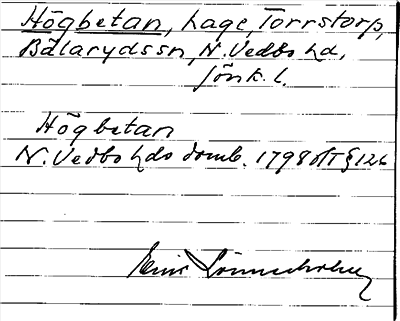 Högbetan, hage, Torrstorp,
Bälarydssn, N. Vedbo hd,
Jönk. l.
Högbetan
N. Vedbo hds domb. 1798 vt § 126